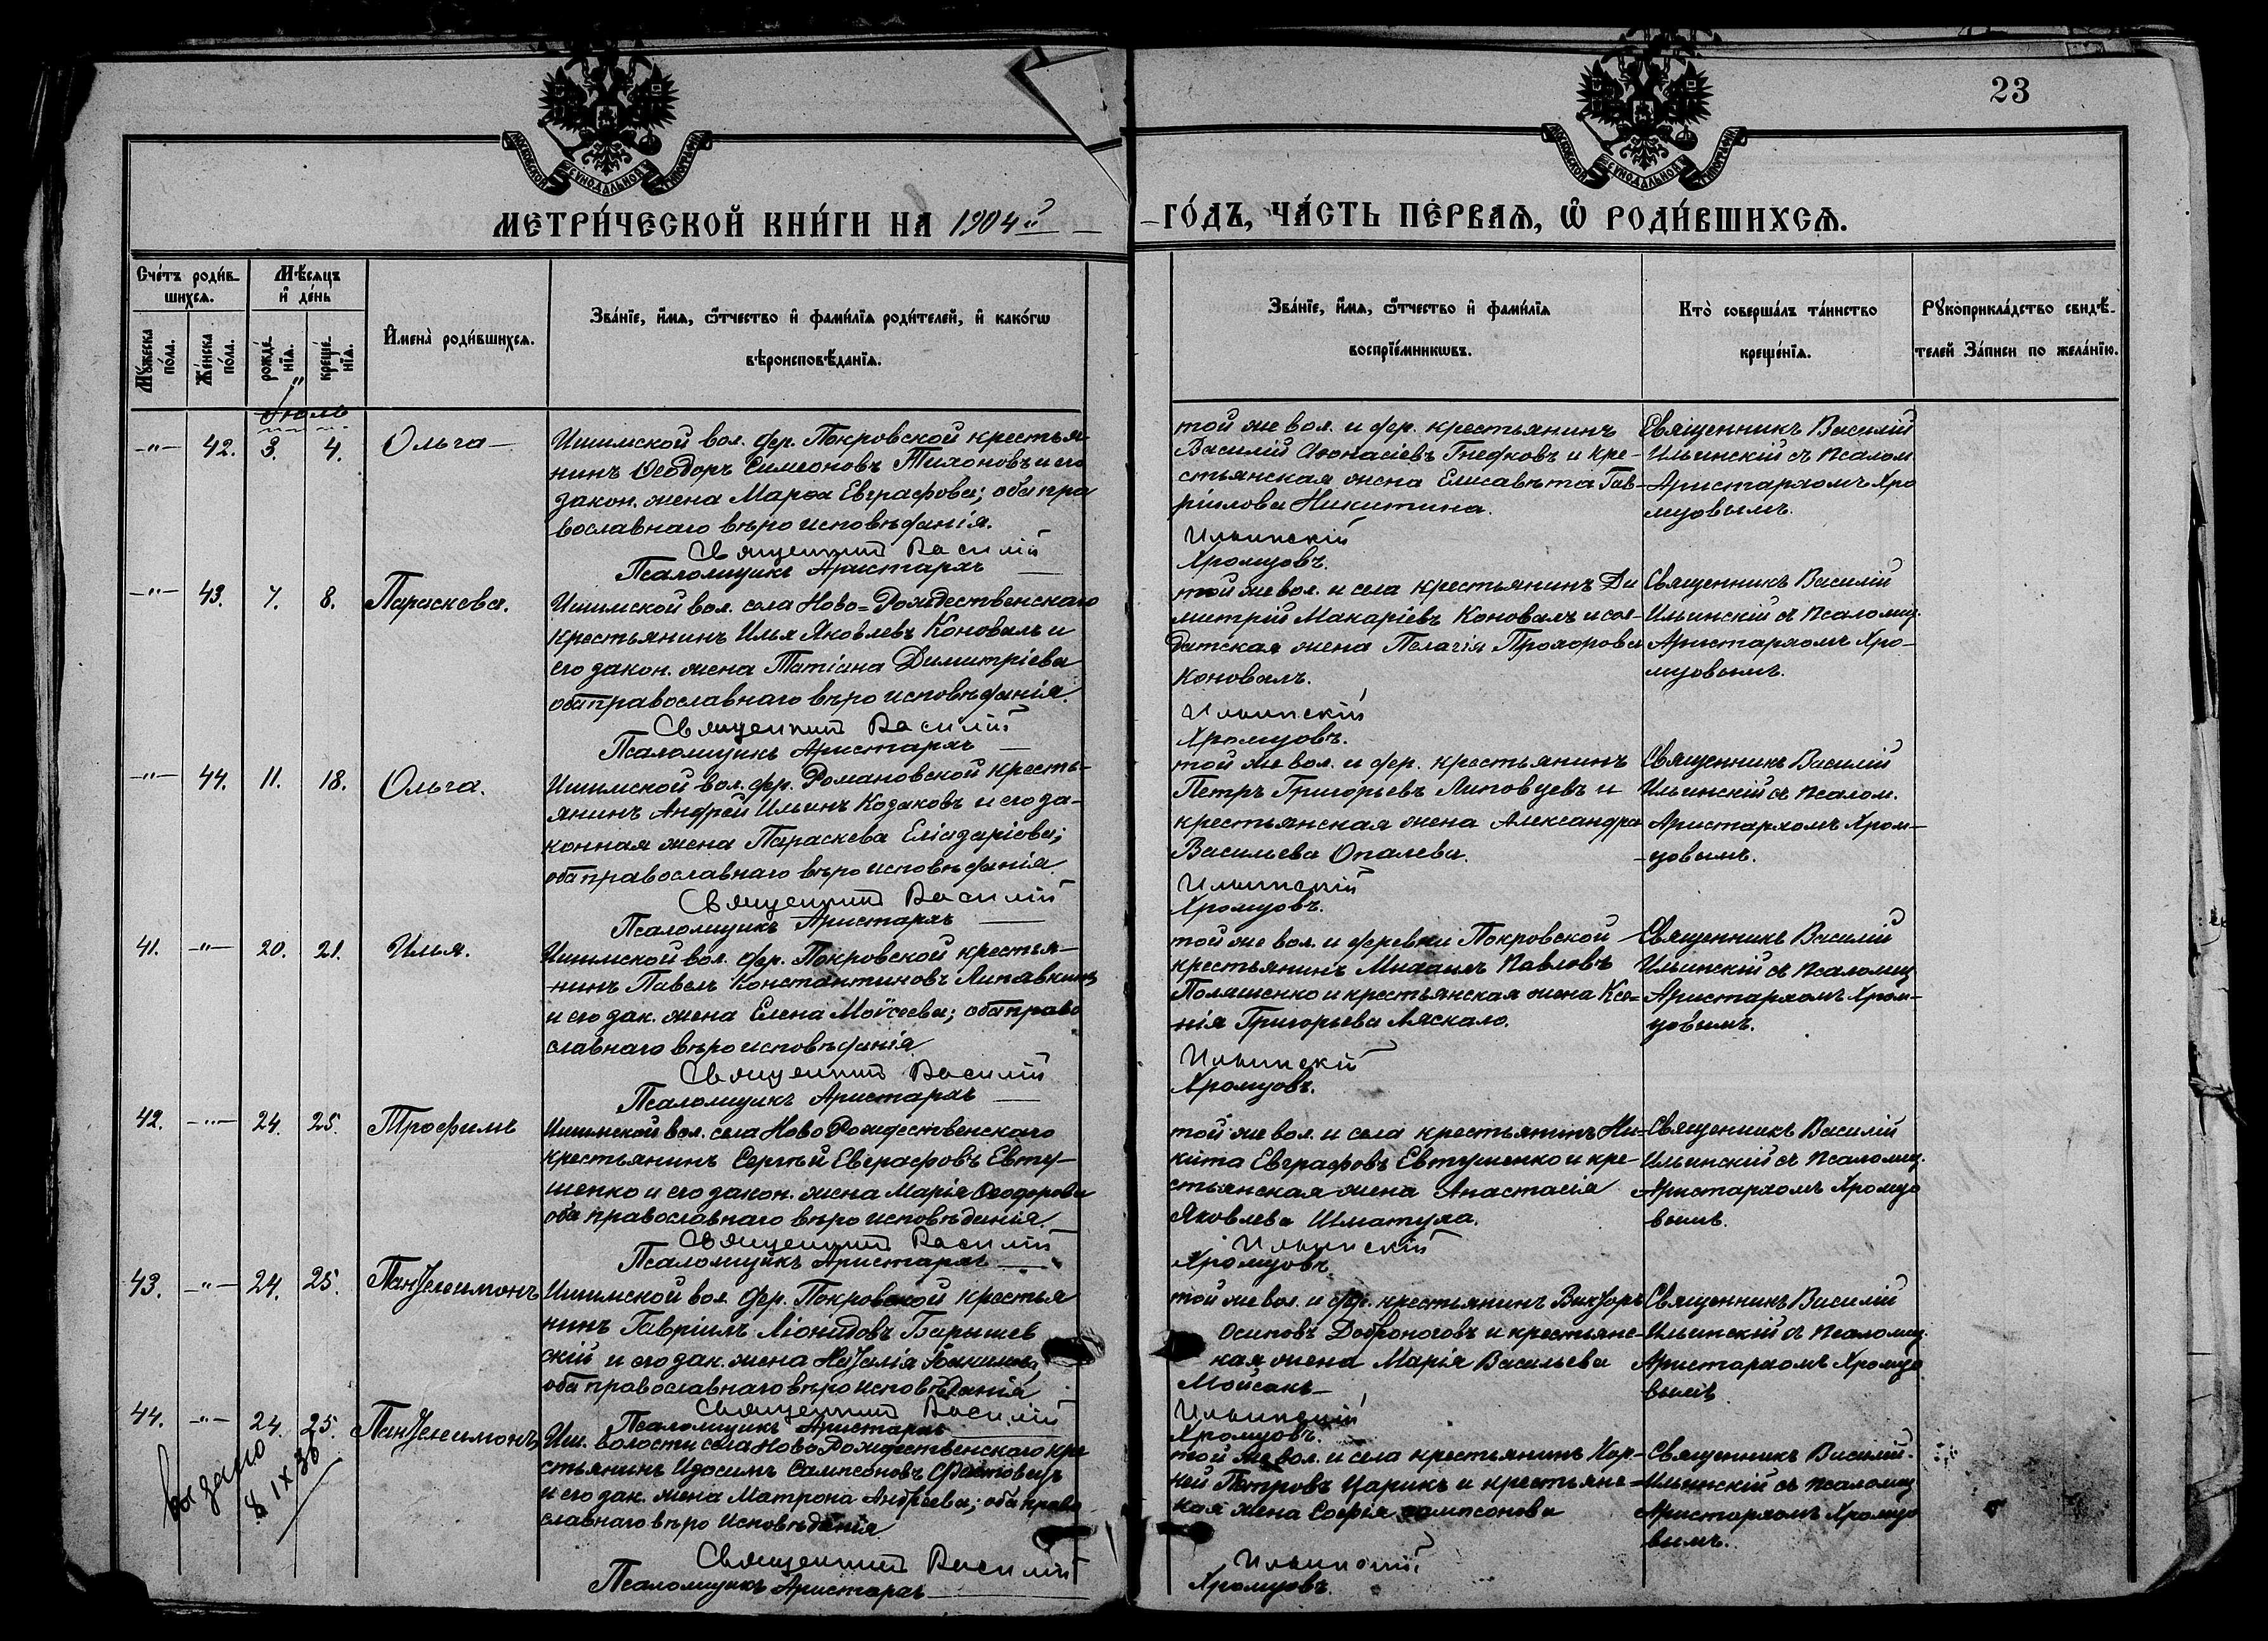 23
МОСКОВСКОЙ СѴНОДАЛЬНОЙ ТИПОГРАФІИ
МОСКОВСКОЙ СѴНОДАЛЬНОЙ ТИПОГРАФІИ
МЕТРИ́ЧЕСКОЙ КНИ́ГИ НА 1904й
ГО́ДЪ, ЧА́СТЬ ПЕ́РВАѦ, Ѡ РОДИ́ВШИХСѦ.
Сче́тъ роди́в-
шихсѧ.
Мѣ́сѧцъ
и҆ де́нь
Мꙋ́жеска по́ла.
Же́нска по́ла.
рожде́нїѧ.
креще́нїѧ.
И҆мена̀ роди́вшихсѧ.
Зва́нїе, и҆́мѧ, ѻ҆́тчество и҆ фами́лїѧ роди́телей, и҆ како́гѡ
вѣроисповѣ́данїѧ.
Зва́нїе, и҆́мѧ, ѻ҆́тчество и҆ фами́лїѧ
воспрїе́мникѡвъ.
Кто̀ соверша́лъ та́инство
креще́нїѧ.
Рꙋкоприкла́дство свидѣ́-
телей за́писи по жела́нїю.
Іюль
-"- 42. 3. 4. Ольга
Ишимской вол. дер. Покровской крестья-
нинъ Ѳеодоръ Симеоновъ Тихоновъ и его
закон. жена Марѳа Евграфова; оба пра
вославнаго вѣроисповѣданія.
Священникъ Василій
Псаломщикъ Аристархъ
той же вол. и дер. крестьянинъ
Василій Аѳонасіевъ Гнедковъ и кре-
стьянская жена Елисавѣта Гав-
ріилова Никитина.
Ильинскій
Хромцовъ.
Священникъ Василій
Ильинскій съ псалом
Аристархомъ Хро
мцовымъ.
-"- 43. 7. 8. Параскева.
Ишимской вол. села Ново-Рождественскаго
крестьянинъ Илья Яковлевъ Коноваль и
его закон. жена Татіана Димитріева
оба православнаго вѣроисповѣданія.
Священникъ Василій
Псаломщикъ Аристархъ
той же вол. и села крестьянинъ Ди
митрій Макаріевъ Коновалъ и сол-
датская жена Пелагія Прохорова
Коновалъ.
Ильинскій
Хромцовъ.
Священникъ Василій
Ильинскій съ псаломщ.
Аристархомъ Хро-
мцовымъ.
-"- 44. 11. 18. Ольга.
Ишимской вол. дер. Романовской кресть-
янинъ Андрей Ильинъ Козаковъ и его за-
конная жена Параскева Еліазаріева;
оба православнаго вѣроисповѣданія.
Священникъ Василій
Псаломщикъ Аристархъ
той же вол. и дер. крестьянинъ
Петръ Григорьевъ Липовцевъ и
крестьянская жена Александра
Васильева Опалева.
Ильинскій
Хромцовъ.
Священникъ Василій
Ильинскій съ псалом.
Аристархомъ Хром-
-цовымъ.
41. -"- 20. 21. Илья.
Ишимской вол. дер. Покровской крестья-
-нинъ Павелъ Константиновъ
и его зак. жена Елена Моѵсеева; оба право
славнаго вѣроисповѣданія
Священникъ Василій
Псаломщикъ Аристархъ
той же вол. и деревни Покровской
крестьянинъ Михаилъ Павловъ
Поляшенко и крестьянская жена Ксе-
нія Григорьева Ляскало.
Ильинскій
Хромцовъ.
Священникъ Василій
Ильинскій съ псаломщ
Аристархомъ Хром-
цовымъ.
42. -"- 24. 25. Трофимъ
Ишимской вол. села Ново Рождественскаго
крестьянинъ Сергѣй Евграфовъ Евту-
шенко и его закон. жена Марія Ѳеодорова
оба православнаго вѣроисповѣданія.
Священникъ Василій
Псаломщикъ Аристархъ
той же вол. и села крестьянинъ Ни-
кита Евграфовъ Евтушенко и кре-
стьянская жена Анастасія
Яковлева Шматуха.
Ильинскій
Хромцовъ
Священникъ Василій
Ильинскій съ псаломщ.
Аристархомъ Хромцо
вымъ.
43. -"- 24. 25. Пантелеимонъ
Ишимской вол. дер. Покровской крестья
нинъ Гавріилъ Ліонидовъ Барышев
скій и его зак. жена Наталія
оба православнаго вѣроисповѣданія
Священникъ Василій
Псаломщикъ Аристархъ
той же вол. и дер. крестьянинъ Викторъ
Осиповъ Доброноговъ и крестьянс-
кая жена Марія Васильева
Мойсакъ
Ильинскій
Хромцовъ.
Священникъ Василій
Ильинскій съ псаломщ.
Аристархомъ Хромцо
вымъ
44. -"- 24. 25. Пантелеимонъ
Иш. волости села Ново Рождественскаго кре
стьянинъ Сампсоновъ
и его зак. жена Матрона Андреева; оба право
славнаго вѣроисповѣданія
Священникъ Василій
Псаломщикъ Аристархъ
той же вол. и села крестьянинъ Кор-
ней Петровъ Царикъ и крестьянс-
кая жена Софія Сампсонова
Ильинскій
Хромцовъ.
Священникъ Василій
Ильинскій съ псаломщ
Аристархомъ Хромцо
вымъ.
выдано
8 IX 36